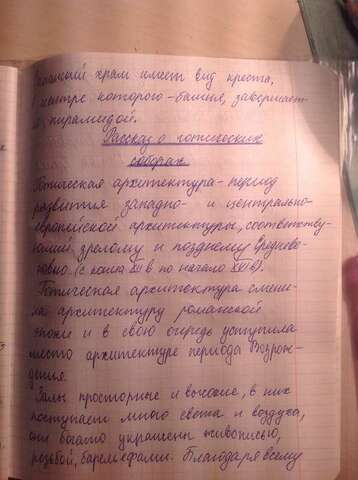 храм имеет вид креста,
в центре которого - башня, завершает-
пирамидой.
Рассказ о готических
соборах
Готическая архитектура - период
развития западно- и центрально-
европейской архитектуры, соответству-
ющий зрелому и позднему Средневе-
ковью (с конца XII в по начало XVI в).
Готическая архитектура смени-
ла архитектуру романской
эпохи и в свою очередь уступила
место архитектуре периода Возрож-
дения.
Залы просторные и высокие, в них
поступает много света и воздуха,
они богато украшены живописью,
резьбой, барельефами. Благодаря всему